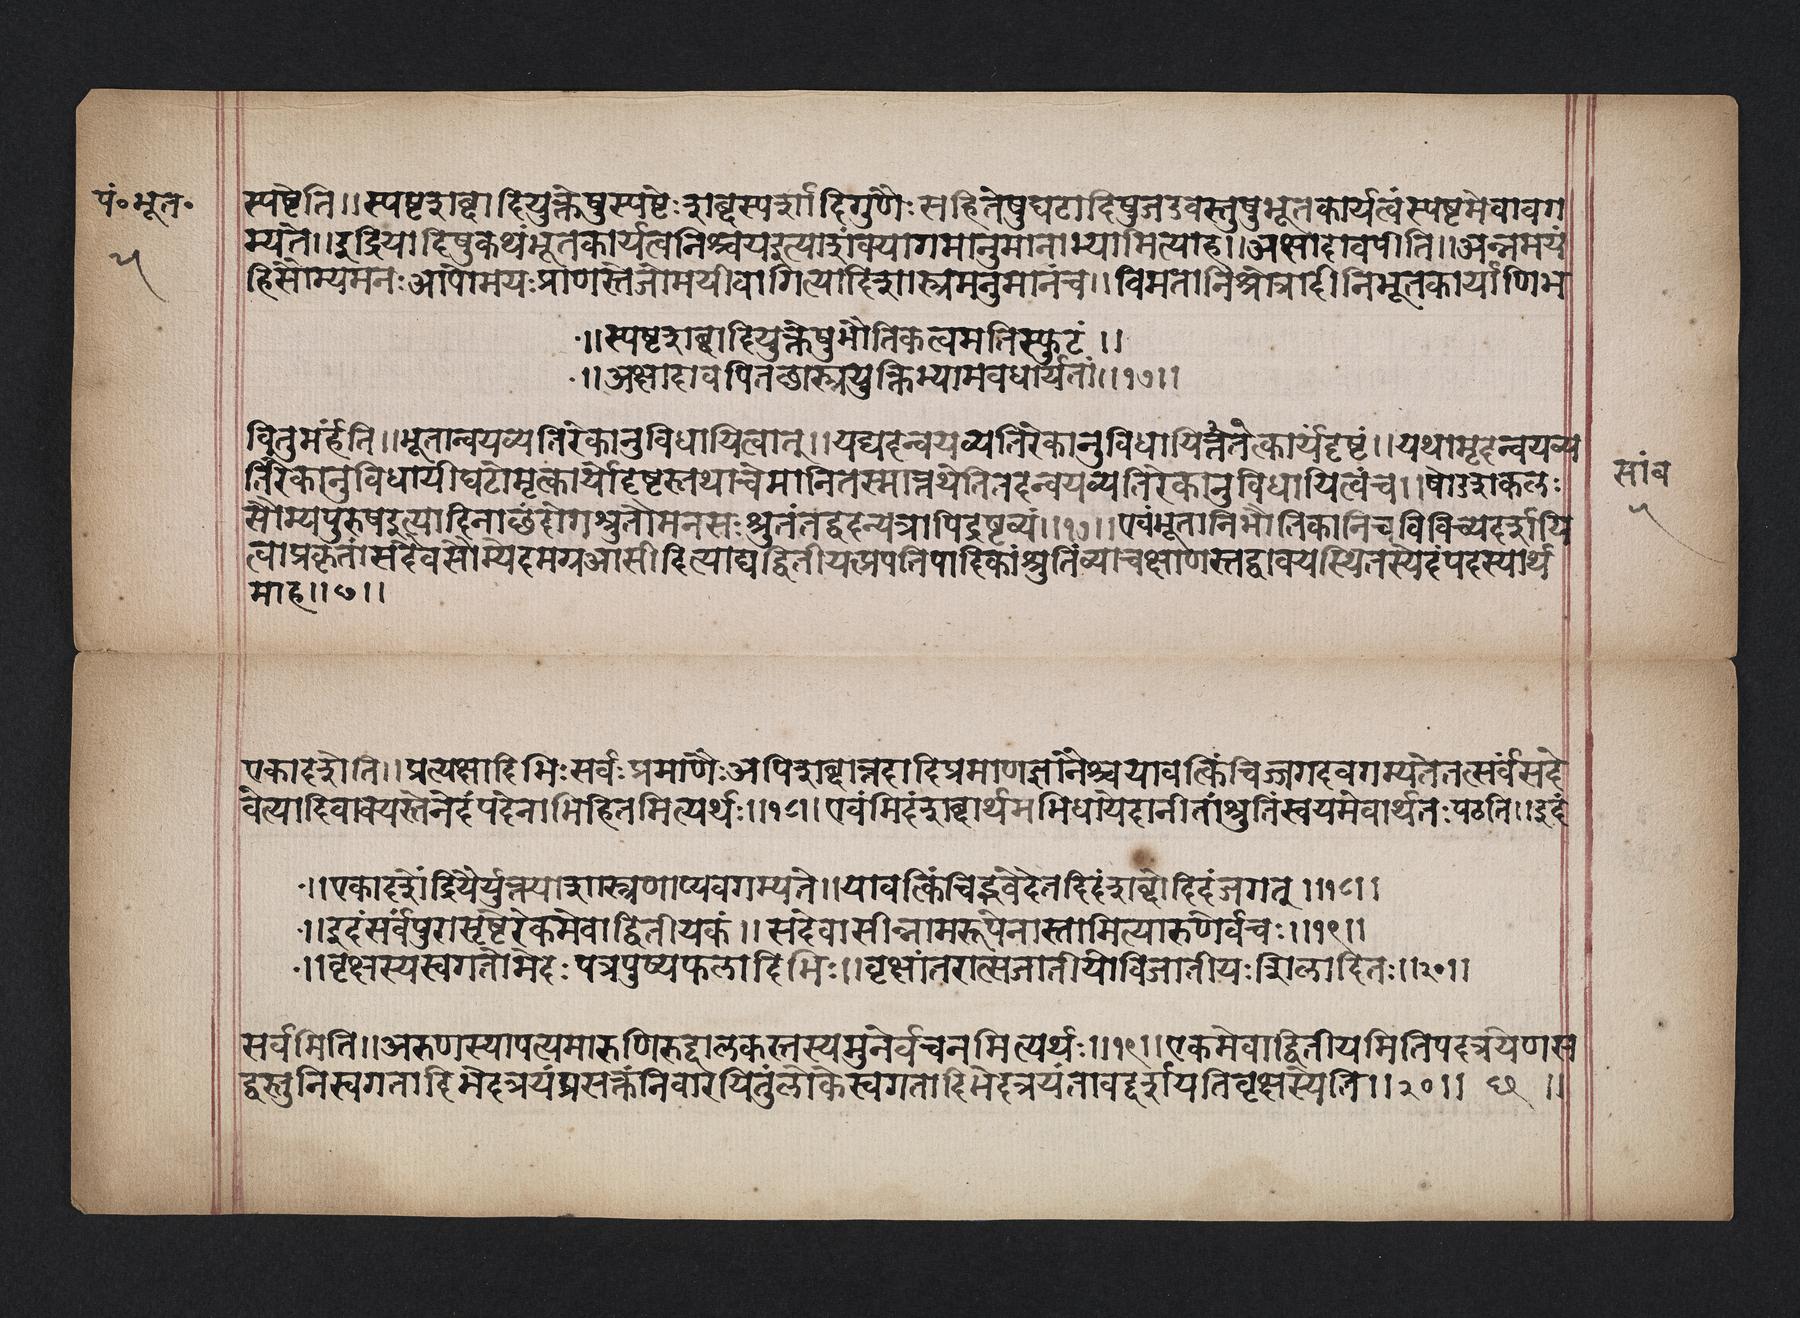 पं॰भूत॰
५
स्पष्टेति॥स्पष्टशब्दादियुक्तेषुस्पष्टैःशब्दस्पर्शादिगुणैःसहितेषुघटादिषुजडवस्तुषुभूतकार्यत्वंस्पष्टमेवावग
म्यते॥इंद्रियादिषुकथंभूतकार्यत्वनिश्चयइत्याशंक्यागमानुमानाभ्यामित्याह॥अक्षादावपीति॥अन्नमयं
हिसोम्यमनःआपोमयःप्राणस्तेजोमयीवागित्यादिशास्त्रमनुमानंच॥विमतानिश्रोत्रादीनिभूतकार्याणिभ
॥स्पष्टशब्दादियुक्तेषुभौतिकत्वमतिस्फुटं॥
॥अक्षादावपितच्छास्त्रयुक्तिभ्यामवधार्यतां॥१७॥
वितुमर्हंति॥भूतान्वयव्यतिरेकानुविधायित्वात्॥यद्यदन्वयव्यतिरेकानुविधायितत्तत्कार्यंदृष्टं॥यथामृदन्वयव्य
तिरेकानुविधायीघटोमृत्कार्योदृष्टस्तथाचेमानितस्मात्तथेतितदन्वयव्यतिरेकानुविधायित्वंच॥षोडशकलः
सोम्यपुरुषइत्यादिनाछंदोगश्रुतौमनसःश्रुतंतद्वदन्यत्रापिद्रष्टव्यं॥१७॥एवंभूतानिभौतिकानिचविविच्यदर्शयि
त्वाप्रकृतांसदेवसौम्येदमग्रआसीदित्याद्यद्वितीयत्प्रपतिपादिकांश्रुतिंव्याचक्षाणस्तद्वाक्यस्थितस्येदंपदस्यार्थ
माह॥छ॥
सांब
५
एकादशेति॥प्रत्यक्षादिभिःसर्वःप्रमाणैःअपिशब्दान्नदादिप्रमाणज्ञानैश्चयावत्किंचिज्जगदवगम्यतेतत्सर्वंसदे
वेत्यादिवाक्यस्तेनेदंपदेनाभिहितमित्यर्थः॥१८॥एवंमिदंशब्दार्थमभिधायेदानीतांश्रुतिंस्वयमेवार्थतःपठति॥इदं
॥एकादशेंद्रियैर्युक्त्याशास्त्रेणाप्यवगम्यते॥यावत्किंचिद्भवेदेतदिदंशब्दोदिदंजगत्॥१८॥
॥इदंसर्वंपुरासृष्टेरेकमेवाद्वितीयकं॥सदेवासीन्नामरूपेनास्तामित्यारुणेर्वचः॥१९॥
॥वृक्षस्यस्वगतोभेदःपत्रपुष्पफलादिभिः॥वृक्षांतरात्सजातीयोविजातीयःशिलादितः॥२०॥
सर्वमिति॥अरुणस्यापत्यमारुणिरुद्दालकस्तस्यमुनेर्वचनमित्यर्थः॥१९॥एकमेवाद्वितीयमितिपदत्रयेणस
द्वस्तुनिस्वगतादिभेदत्रयंप्रसक्तंनिवारयितुंलोकेस्वगतादिभेदत्रयंतावद्दर्शयतिवृक्षस्येति॥२०॥ छ ॥